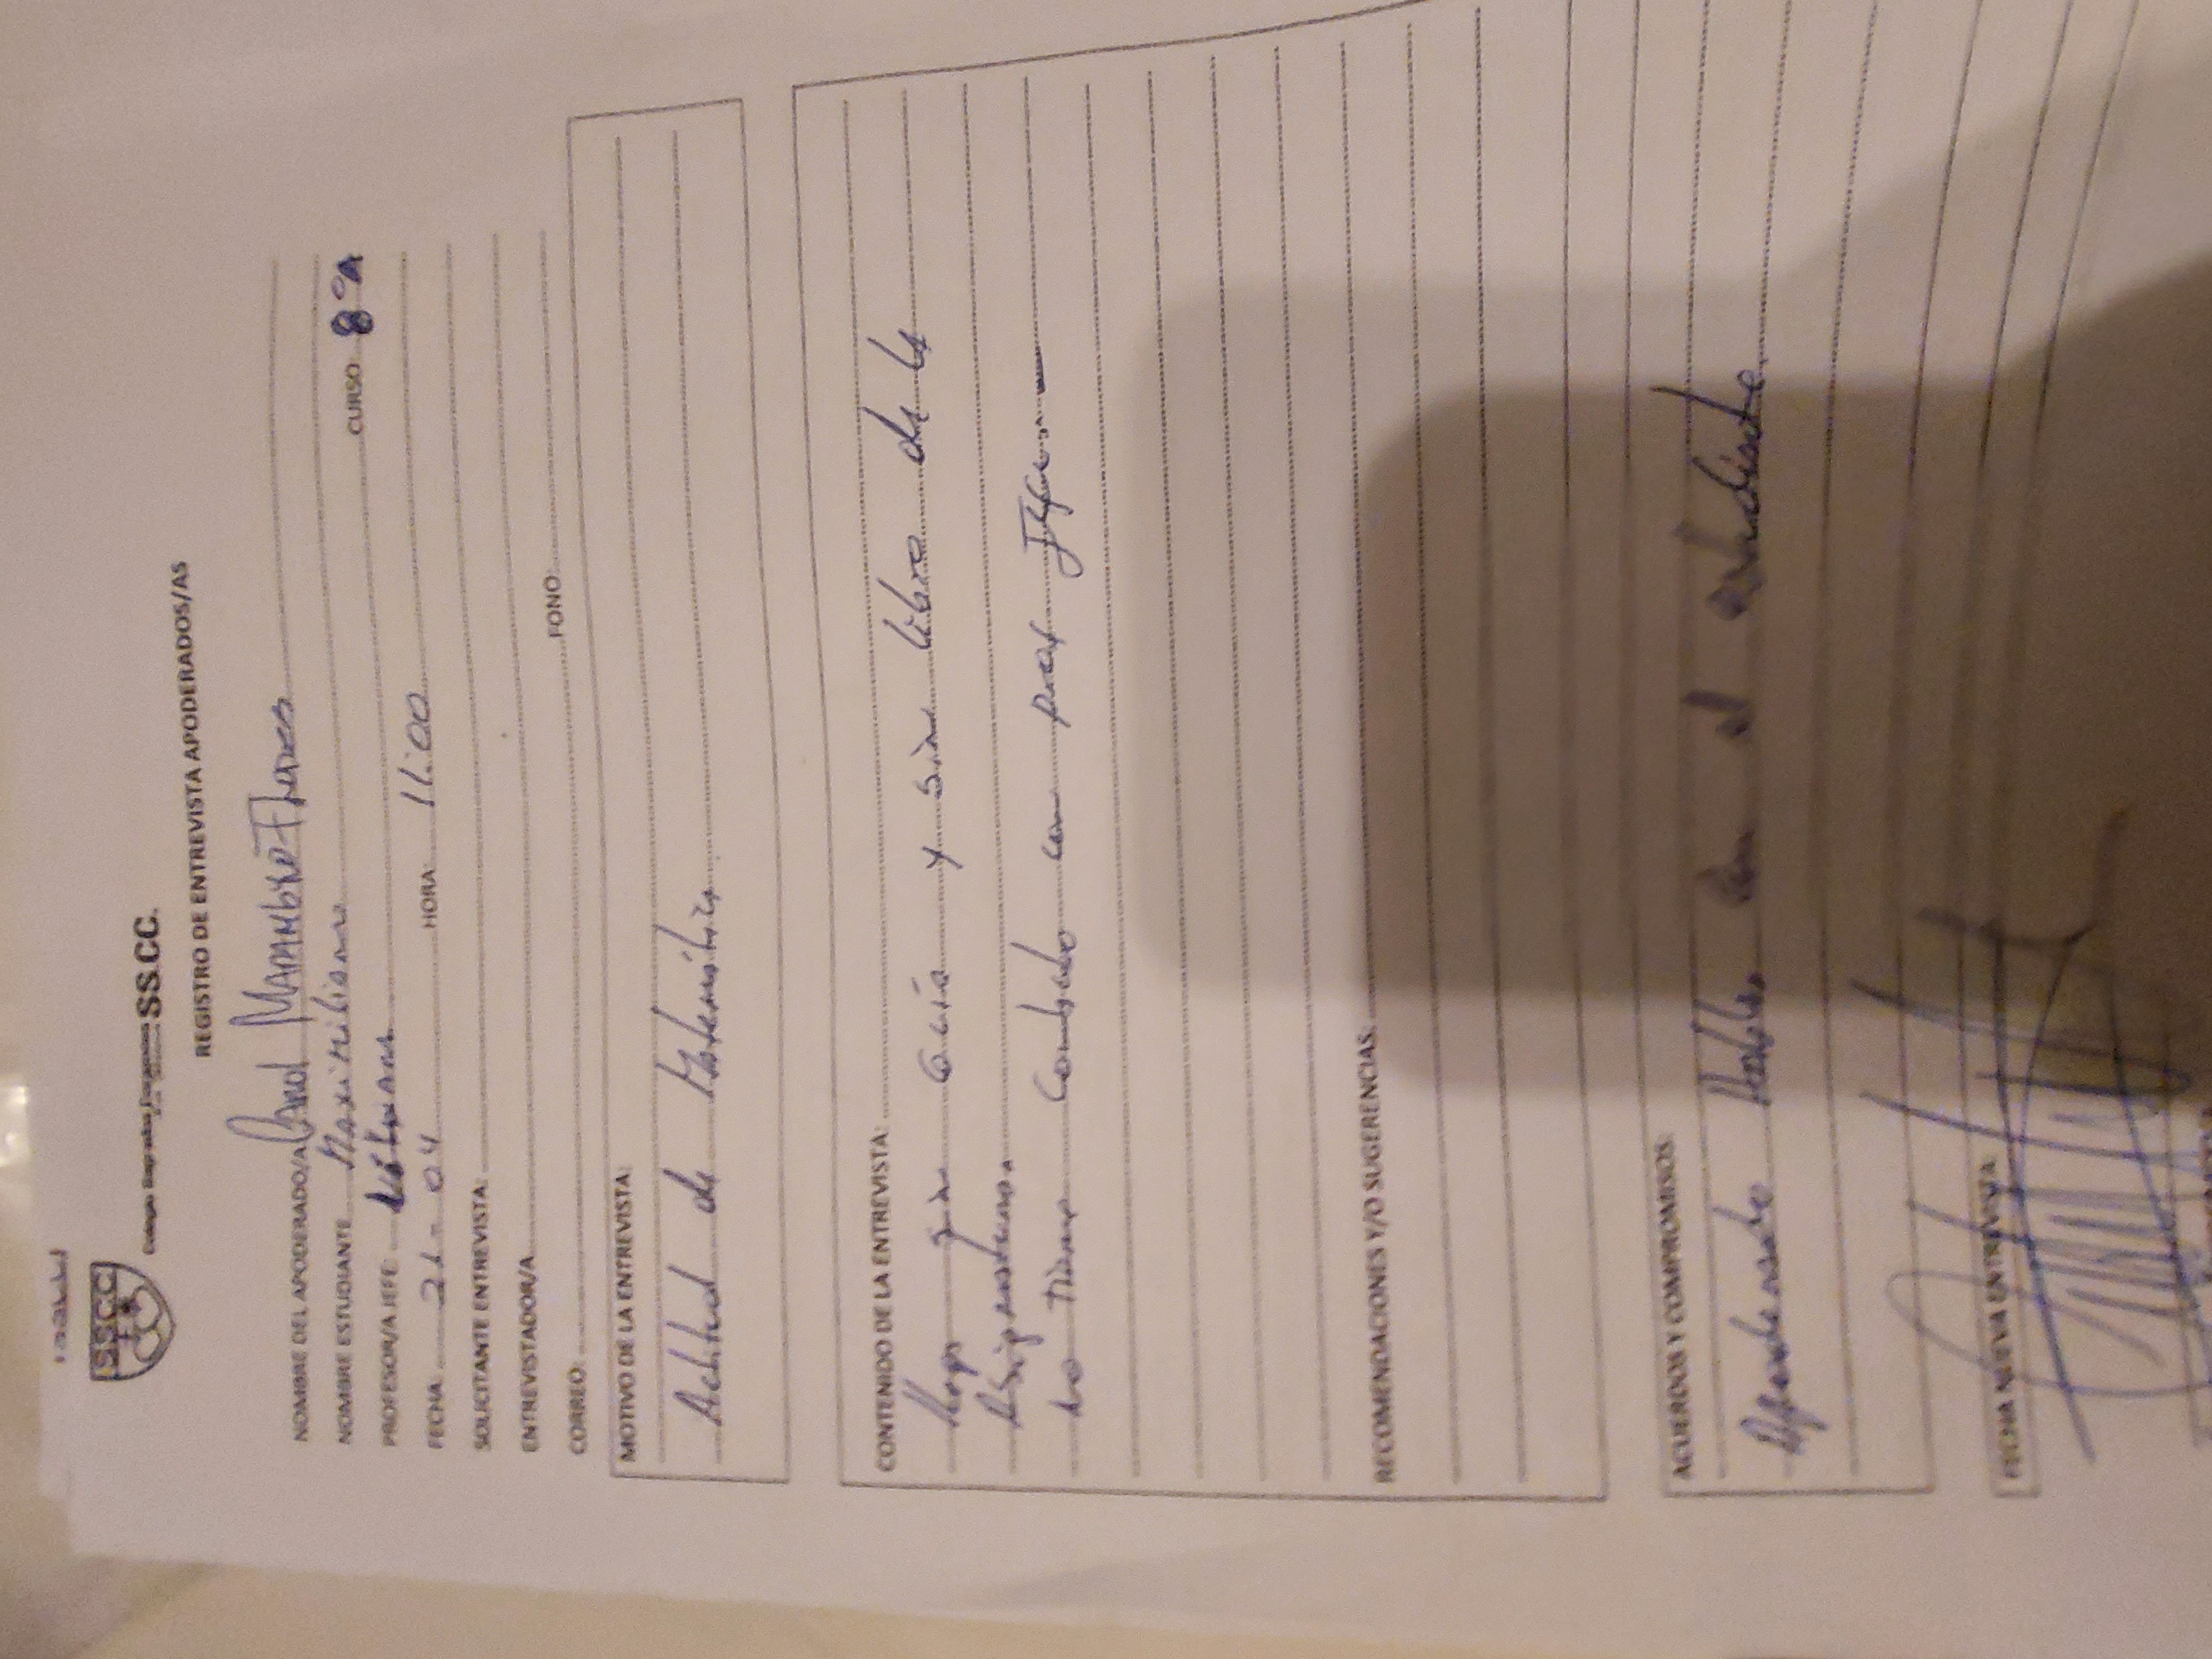 SSCC
SS.CC.
REGISTRO DE ENTREVISTA APODERADOS/AS
NOMBRE DEL APODERADO/A Carol
NOMBRE ESTUDIANTE Maximiliano CURSO 8ºA
PROFESOR/A JEFE:
FECHA 21-04 HORA: 11:00
SOLICITANTE ENTREVISTA:
ENTREVISTADOR/A
CORREO: FONO:
MOTIVO DE LA ENTREVISTA:
Actitud de Matemática
CONTENIDO DE LA ENTREVISTA:
Llega sin Guía y sin libro de la
Asignatura.
No Tiene Cambiado con prof Jefe.
RECOMENDACIONES Y/O SUGERENCIAS:
ACUERDOS Y COMPROMISOS:
Apoderado Hablar con el estudiante.
FECHA NUEVA ENTREVISTA: